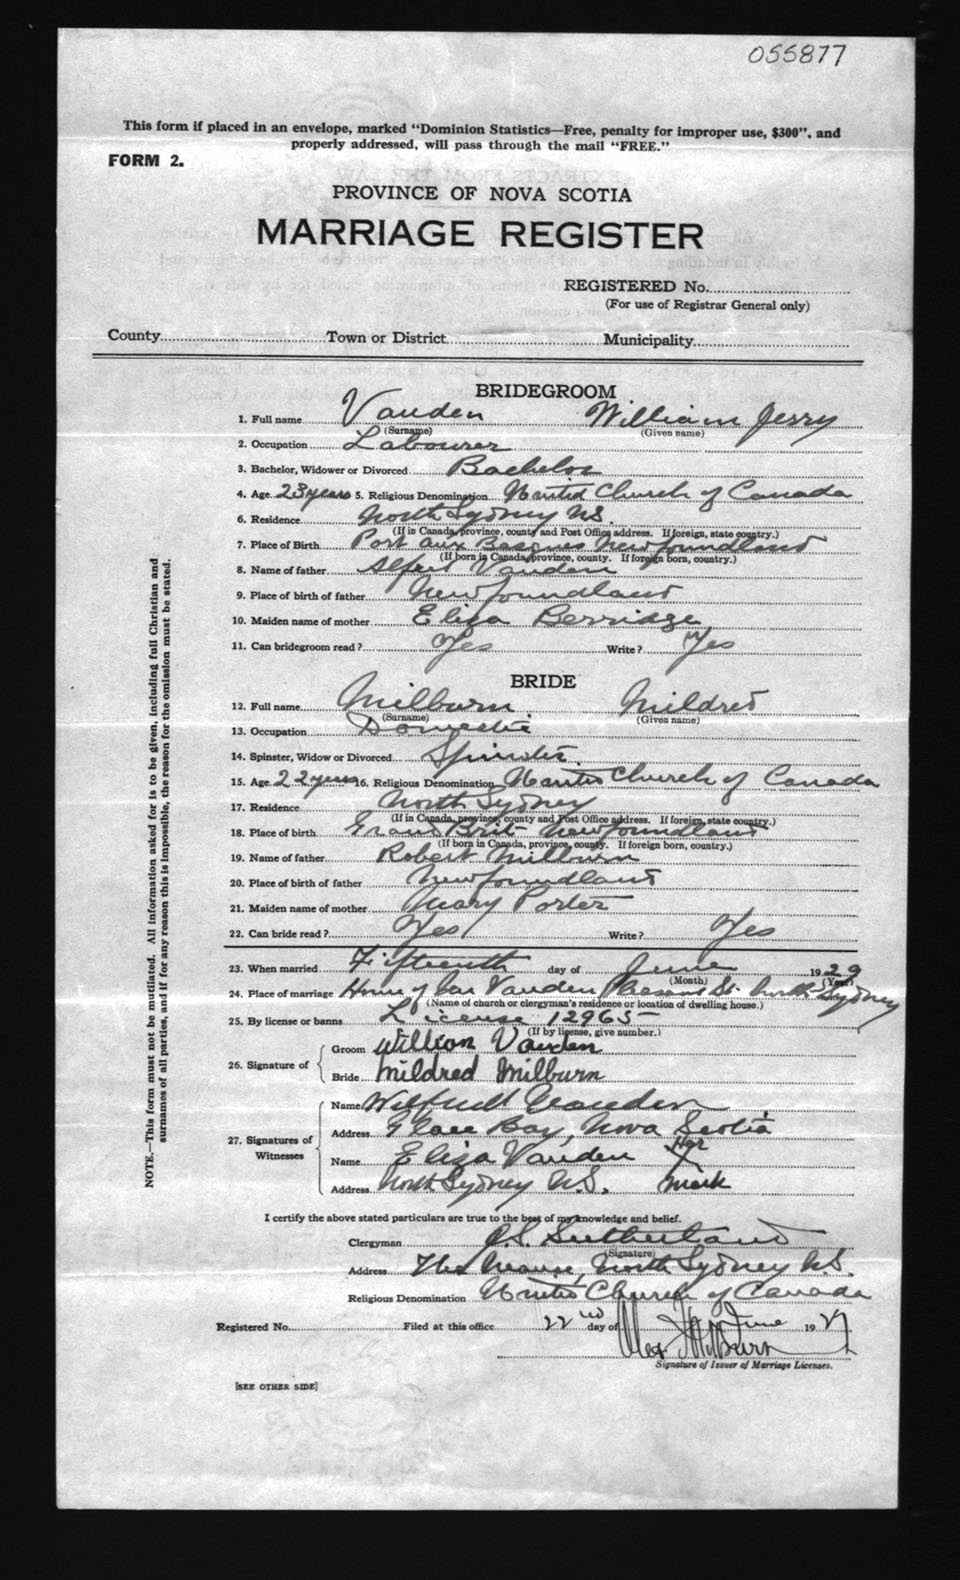 055877
This form if placed in an envelope, marked "Dominion Statistics—Free, penalty for improper use, $300", and
properly addressed, will pass through the mail "FREE."
FORM 2.
PROVINCE OF NOVA SCOTIA
MARRIAGE REGISTER
REGISTERED No.
(For use of Registrar General only)
County Town or District Municipality
BRIDEGROOM
1. Full name Vauden William Jerry
(Surname) (Given name)
2. Occupation Labourer
3. Bachelor, Widower or Divorced Bachelor
4. Age 23 years 5. Religious Denomination United Church of Canada
6. Residence North Sydney N.S.
(If in Canada, province, county and Post Office address. If foreign, state country.)
7. Place of Birth Port aux Basques Newfoundland
(If born in Canada, province, county. If foreign born, country.)
8. Name of father Alfred Vauden
9. Place of birth of father Newfoundland
10. Maiden name of mother Eliza Berridge
11. Can bridegroom read? Yes Write? Yes
BRIDE
12. Full name Milburn Mildred
(Surname) (Given name)
13. Occupation Domestic
14. Spinster, Widow or Divorced Spinster
15. Age 22 years 16. Religious Denomination United Church of Canada
17. Residence North Sydney
(If in Canada, province, county and Post Office address. If foreign, state country.)
18. Place of birth Grand Brit Newfoundland
(If born in Canada, province, county. If foreign born, country.)
19. Name of father Robert Milburn
20. Place of birth of father Newfoundland
21. Maiden name of mother Mary Porter
22. Can bride read? Yes Write? Yes
23. When married Fifteenth day of June 1929
(Month) (Year)
24. Place of marriage Home of Vauden Pleasant St. North Sydney
(Name of church or clergyman's residence or location of dwelling house.)
25. By license or banns License 12965
(If by license, give number.)
26. Signature of
Groom William Vauden
Bride Mildred Milburn
27. Signatures of Witnesses
Name Wilfred Vauden
Address Glace Bay, Nova Scotia
Name Eliza Vauden Her X
Address North Sydney N.S. mark
I certify the above stated particulars are true to the best of my knowledge and belief.
Clergyman Sutherland
(Signature)
Address The Manse, North Sydney N.S.
Religious Denomination United Church of Canada
Registered No. Filed at this office 22nd day of June 19
Signature of Issuer of Marriage Licenses.
[SEE OTHER SIDE]
NOTE.—This form must not be mutilated. All information asked for is to be given, including full Christian and
surnames of all parties, and if for any reason this is impossible, the reason for the omission must be stated.